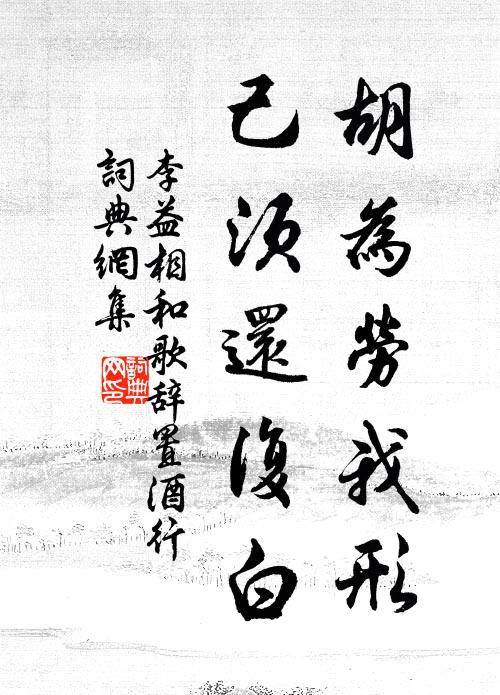 胡為勞我形
己須還復白
李益相和歌辞置酒行
詞典網集
詞典网印